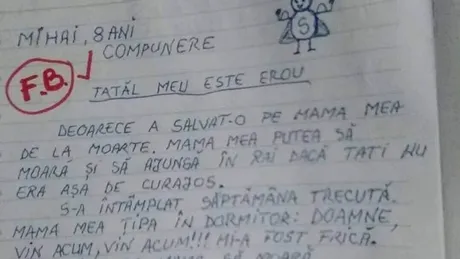 MIHAI, 8 ANI
COMPUNERE
F.B.
S
TATĂL MEU ESTE EROU
DEOARECE A SALVAT-O PE MAMA MEA
DE LA MOARTE. MAMA MEA PUTEA SĂ
MOARĂ ȘI SĂ AJUNGĂ ÎN RAI DACĂ TATI NU
ERA AȘA DE CURAJOS.
S-A ÎNTÂMPLAT SĂPTĂMÂNA TRECUTĂ.
MAMA MEA ȚIPA ÎN DORMITOR: DOAMNE,
VIN ACUM, VIN ACUM!!! MI-A FOST FRICĂ.
SĂ MOARĂ